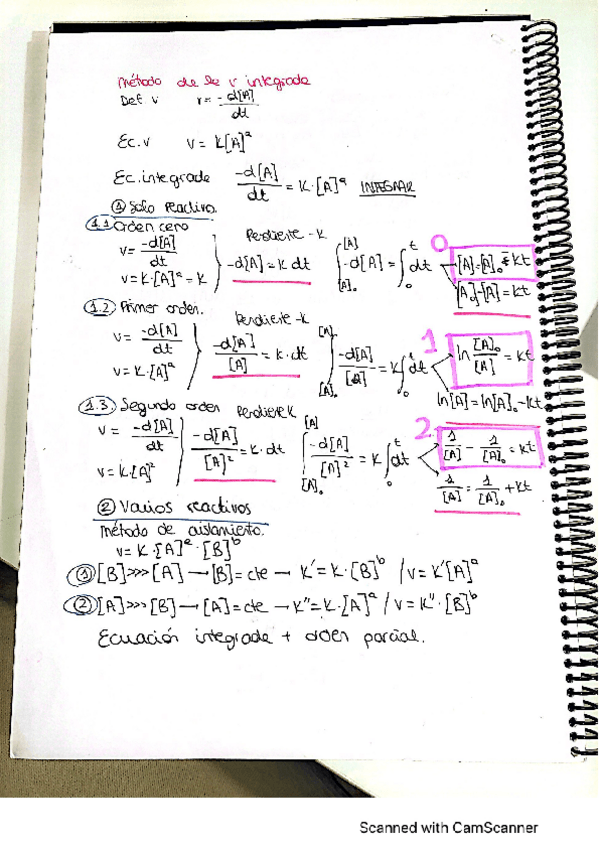 Método de la v integrada
Def v v = -d[A]/dt
Ec.v v = K[A]ᵃ
Ec.integrada -d[A]/dt = K·[A]ᵃ INTEGRAR
① Solo reactivo.
1.1 Orden cero Pendiente -K
v = -d[A]/dt
v = K·[A]ᵃ = K
-d[A] = K dt ∫[A]₀[A] -d[A] = ∫₀ᵗ dt
0 [A]=[A]₀ Kt
[A]₀-[A] = Kt
1.2 Primer orden. Pendiente -K
v = -d[A]/dt
v = K·[A]ᵃ
-d[A]/[A] = K·dt ∫[A]₀[A] -d[A]/[A] = K∫₀ᵗ dt
1 ln [A]₀/[A] = Kt
ln[A] = ln[A]₀ - Kt
1.3 Segundo orden Pendiente K
v = -d[A]/dt
v = K·[A]²
-d[A]/[A]² = K·dt ∫[A]₀[A] -d[A]/[A]² = K∫₀ᵗ dt
2. 1/[A] - 1/[A]₀ = Kt
1/[A] = 1/[A]₀ + Kt
② Varios reactivos
Método de aislamiento.
v = K·[A]ᵃ·[B]ᵇ
① [B]>>>[A] → [B]=cte → K' = K·[B]ᵇ / v = K'[A]ᵃ
② [A]>>>[B] → [A]=cte → K'' = K·[A]ᵃ / v = K''·[B]ᵇ
Ecuación integrada + orden parcial.
Scanned with CamScanner